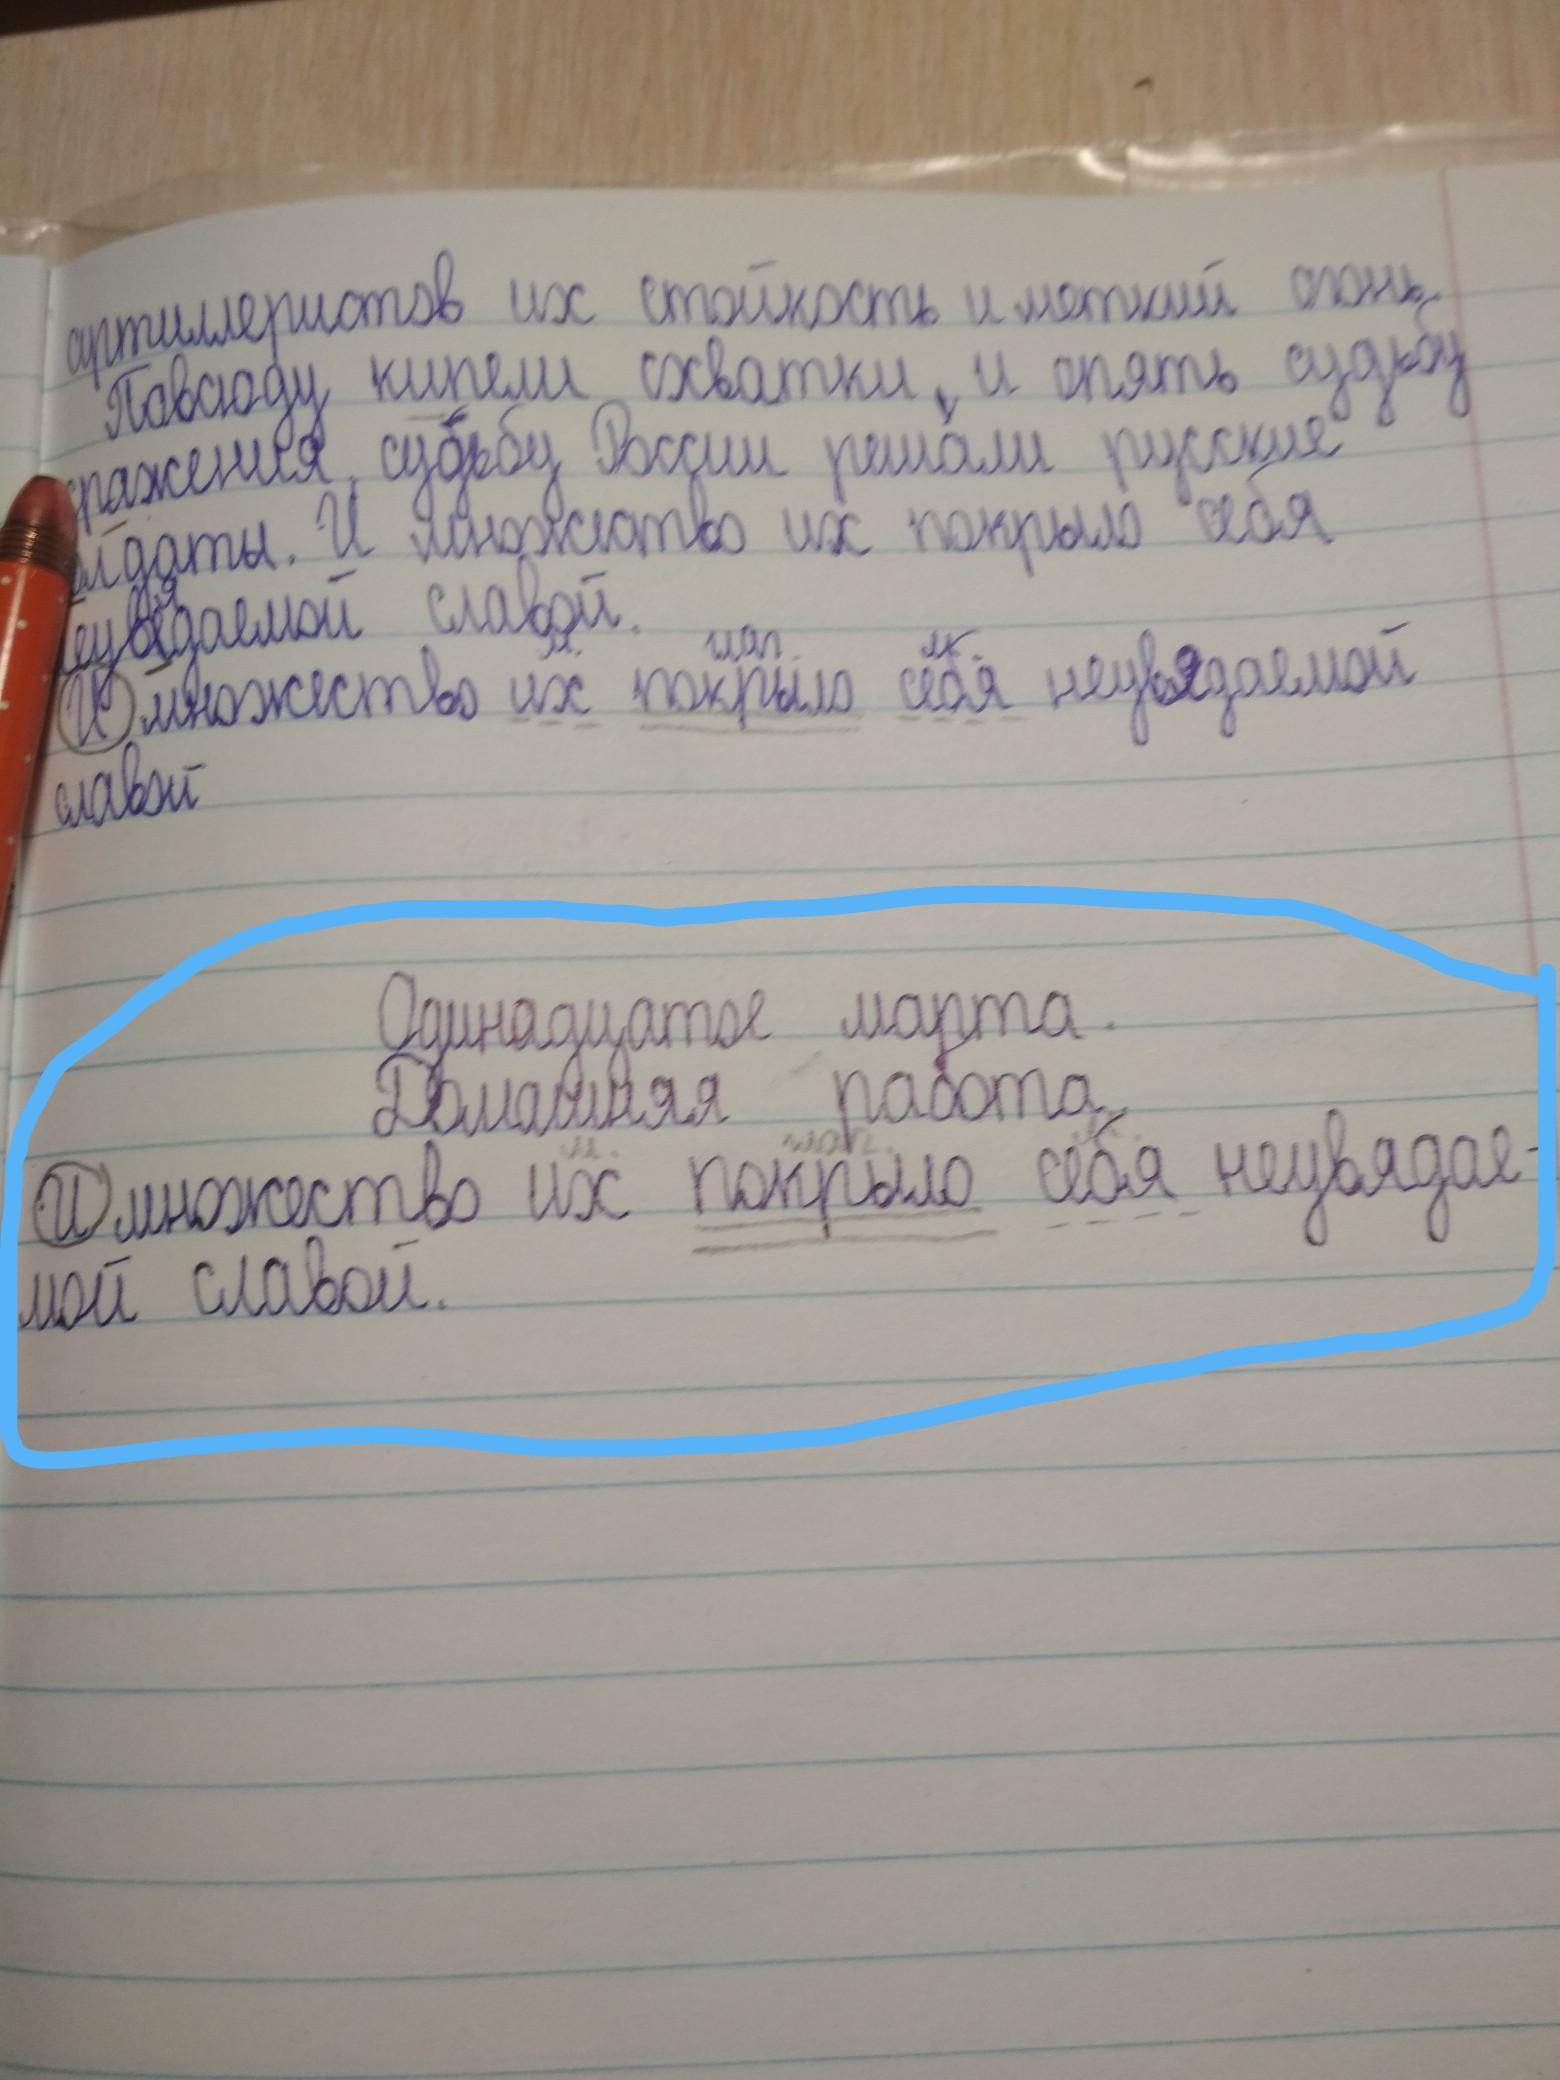 артиллеристов их стойкость и меткий огонь.
Повсюду кипели схватки, и опять судьбу
сражения, судьбу России решали русские
олдаты. И множество их покрыло себя
неувядаемой славой.
м. глаг. м.
И множество их покрыло себя неувядаемой
славой
Одинадцатое марта.
Домашняя работа.
м. глаг. м.
И множество их покрыло себя неувядае-
мой славой.